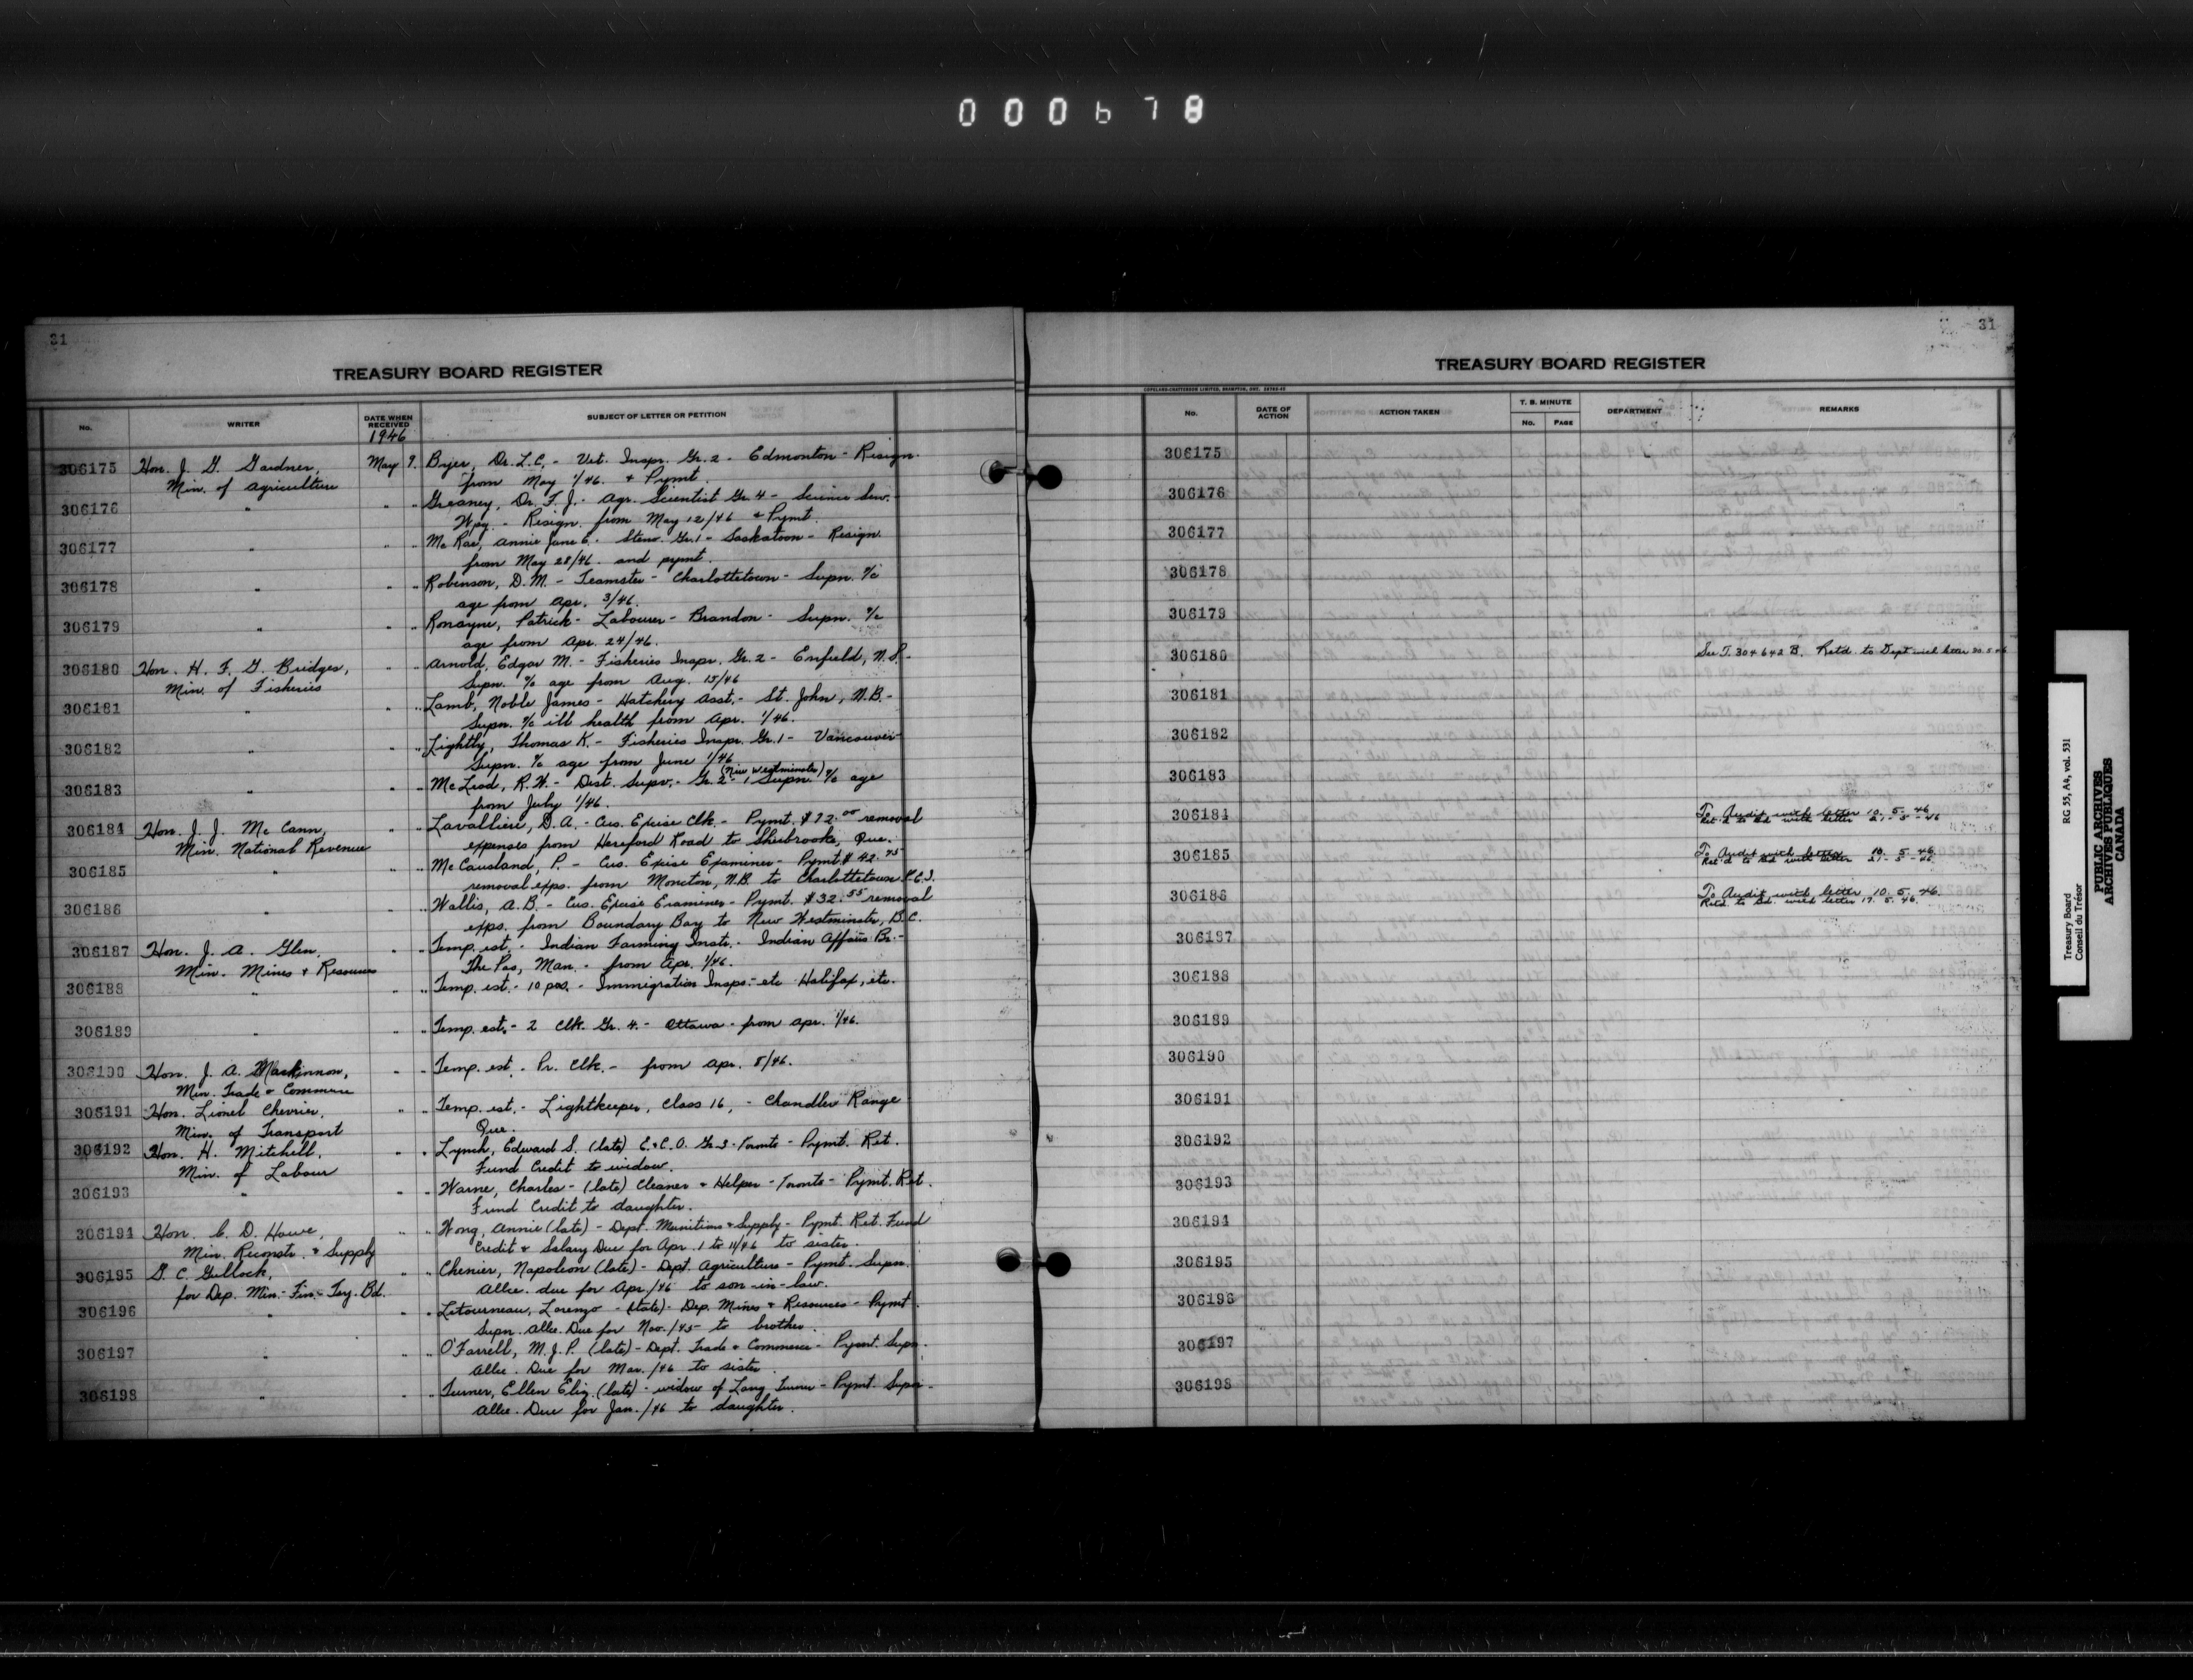 000678
31
TREASURY BOARD REGISTER
No.
WRITER
DATE WHEN RECEIVED
SUBJECT OF LETTER OR PETITION
1946
306175 Hon. J. G. Gardner, May 9. Byer, Dr. L.C. - Vet. Inspr. Gr. 2 - Edmonton - Resign.
Min. of Agriculture from May 1/46. & Pymt.
306176 " " " Greaney, Dr. F. J. - Agr. Scientist Gr. 4 - Science Serv.
Wpg. - Resign. from May 12/46 & Pymt.
306177 " " " Mc Rae, Annie Jane E. - Steno. Gr. 1 - Saskatoon - Resign.
from May 28/46. and pymt.
306178 " " " Robinson, D. M. - Teamster - Charlottetown - Supn. a/c
age from Apr. 3/46.
306179 " " " Ronayne, Patrick - Labourer - Brandon - Supn. a/c
age from Apr. 24/46.
306180 Hon. H. F. G. Bridges, " " Arnold, Edgar M. - Fisheries Inspr. Gr. 2 - Enfield, N.S. -
Min. of Fisheries Supn. a/c age from Aug. 15/46
306181 " " " Lamb, Noble James - Hatchery Asst. - St. John, N.B. -
Supn. a/c ill health from Apr. 1/46.
306182 " " " Lightly, Thomas K. - Fisheries Inspr. Gr. 1 - Vancouver -
Supn. a/c age from June 1/46
(New Westminster)
306183 " " " Mc Leod, R. W. - Dist. Supv. - Gr. 2 - Supn. a/c age
from July 1/46.
306184 Hon. J. J. Mc Cann, " " Lavalliere, D. A. - Cus. Excise Clk. - Pymt. $72.00 removal
Min. National Revenue expenses from Hereford Road to Sherbrooke, Que.
306185 " " " Mc Causland, P. - Cus. Excise Examiner - Pymt. $42.45
removal exps. from Moncton, N.B. to Charlottetown P.E.I.
306186 " " " Wallis, A. B. - Cus. Excise Examiner - Pymt. $32.55 removal
exps. from Boundary Bay to New Westminster, B.C.
306187 Hon. J. A. Glen, " " Temp. est. - Indian Farming Instr. - Indian Affairs Br. -
Min. Mines & Resources The Pas, Man. - from Apr. 1/46.
306188 " " " Temp. est. - 10 pos. - Immigration Insps. - etc Halifax, etc.
306189 " " " Temp. est. - 2 Clk. Gr. 4. - Ottawa - from Apr. 1/46.
306190 Hon. J. A. MacKinnon, " " Temp. est. - Pr. Clk. - from Apr. 8/46.
Min. Trade & Commerce
306191 Hon. Lionel Chevrier, " " Temp. est. - Lightkeeper, Class 16, - Chandler Range
Min. of Transport Que.
306192 Hon. H. Mitchell, " " Lynch, Edward S. (late) E. & C. O. Gr. 3 - Toronto - Pymt. Ret.
Min. of Labour Fund Credit to widow.
306193 " " " Warne, Charles - (late) Cleaner & Helper - Toronto - Pymt. Ret.
Fund Credit to daughter.
306194 Hon. C. D. Howe, " " Wong, Annie (late) - Dept. Munitions & Supply - Pymt. Ret. Fund
Min. Reconstr. & Supply Credit & Salary Due for Apr. 1 to 11/46 to sister.
306195 G. C. Gullock, " " Chenier, Napoleon (late) - Dept. Agriculture - Pymt. Supn.
for Dep. Min. - Fin. - Tsy. Bd. Allce. due for Apr./46 to son-in-law.
306196 " " " Letourneau, Lorenzo - (late) - Dep. Mines & Resources - Pymt.
Supn. Allce. Due for Nov./45 to brother.
306197 " " " O'Farrell, M. J. P. (late) - Dept. Trade & Commerce - Pymt. Supn.
Allce. Due for Mar. /46 to sister
306198 " " " Turner, Ellen Eliz. (late) - widow of Lang Turner - Pymt. Supn.
Allce. Due for Jan. /46 to daughter.
31
TREASURY BOARD REGISTER
COPELAND-CHATTERSON LIMITED, BRAMPTON, ONT.
No.
DATE OF ACTION
ACTION TAKEN
T. B. MINUTE
No.
PAGE
DEPARTMENT
REMARKS
306175
306176
306177
306178
306179
306180 See T. 304642 B. Retd. to Dept with letter 20.5.46
306181
306182
306183
306184 To Audit with letter 10. 5. 46
Ret'd to Bd with letter 21-5-46
306185 To Audit with letter 10. 5. 46
Ret'd to Bd with letter 21-5-46
306186 To Audit with letter 10. 5. 46.
Retd. to Bd. with letter 17. 5. 46.
306187
306188
306189
306190
306191
306192
306193
306194
306195
306196
306197
306198
Treasury Board RG 55, A4, vol. 531
Conseil du Trésor
PUBLIC ARCHIVES
ARCHIVES PUBLIQUES
CANADA